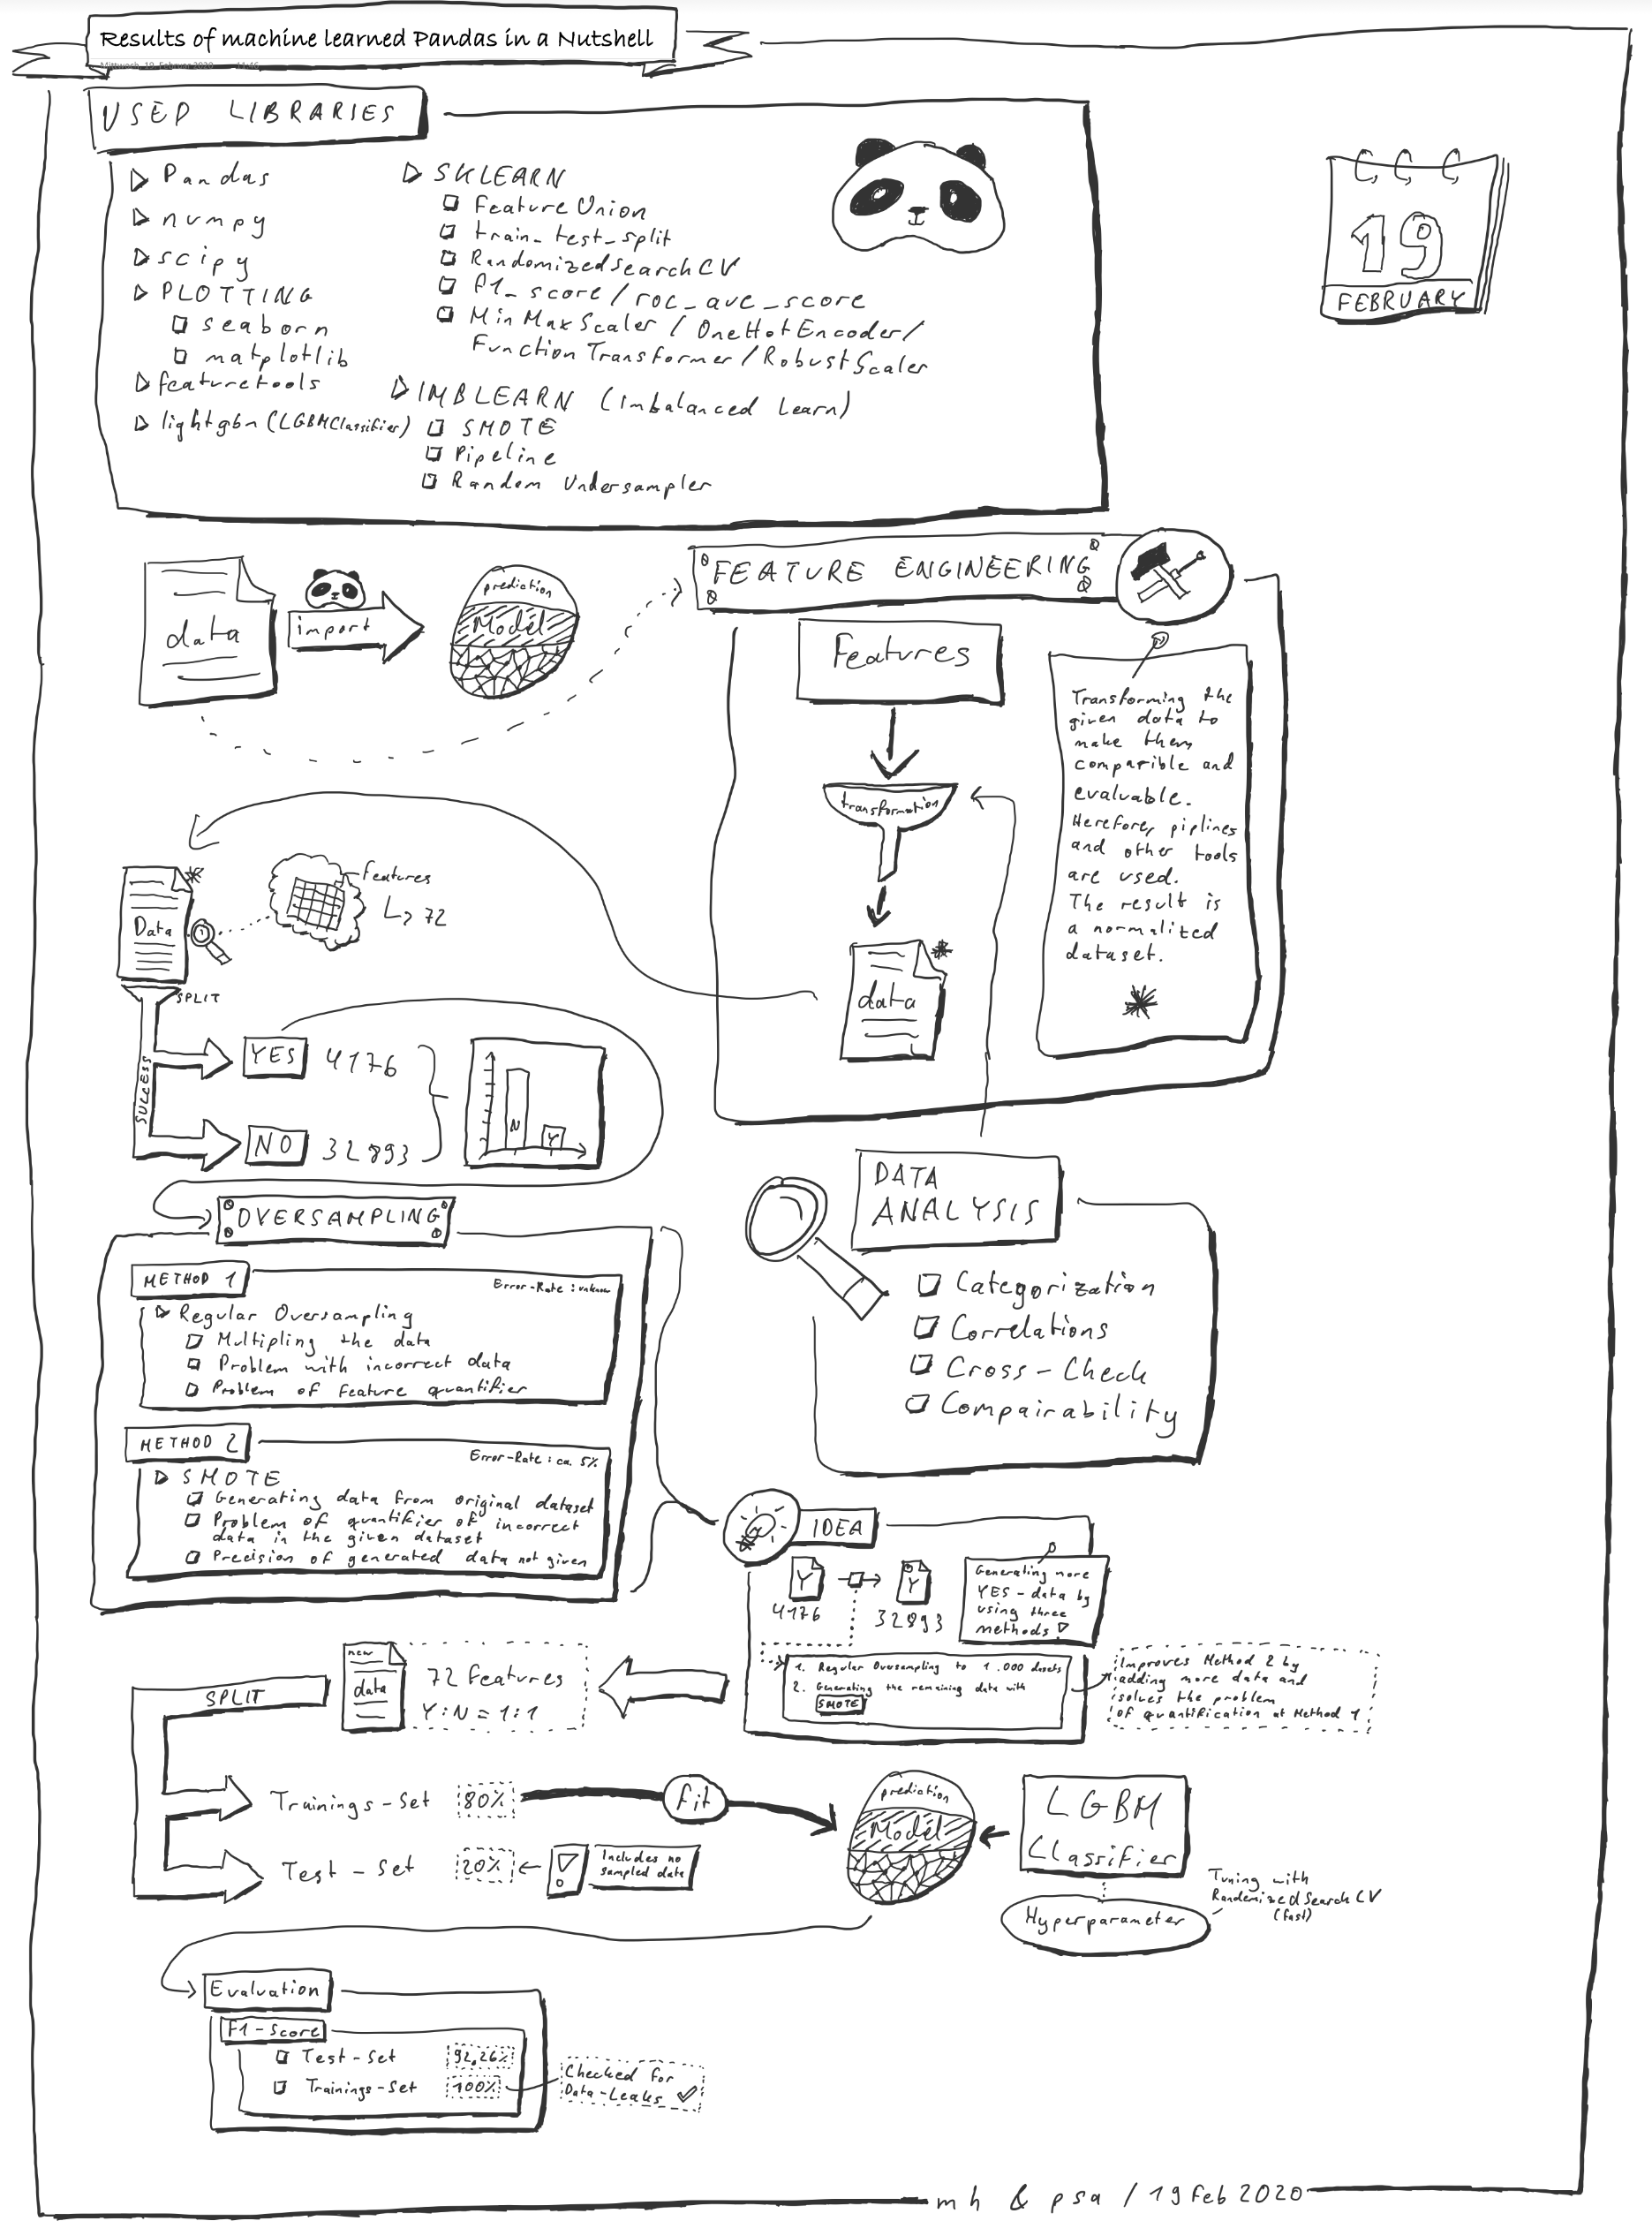 Results of machine learned Pandas in a Nutshell
Mittwoch, 19. Februar 2020 11:46
USED LIBRARIES
Pandas
numpy
scipy
PLOTTING
seaborn
matplotlib
featuretools
lightgbm (LGBMClassifier)
SKLEARN
Feature Union
train_test_split
RandomizedSearchCV
f1_score/roc_auc_score
MinMaxScaler / OneHotEncoder/
Function Transformer / RobustScaler
IMBLEARN (Imbalanced Learn)
SMOTE
Pipeline
Random Undersampler
19
FEBRUARY
data
import
prediction
Model
FEATURE ENGINEERING
Features
transformation
data
Transforming the
given data to
make them
comparible and
evaluable.
Herefore, piplines
and other tools
are used.
The result is
a normalized
dataset.
Data
Features
72
SPLIT
SUCCESS
YES 4176
NO 32893
N
Y
DATA
ANALYSIS
Categorization
Correlations
Cross-Check
Compairability
OVERSAMPLING
METHOD 1
Error-Rate: unknow
Regular Oversampling
Multipling the data
Problem with incorrect data
Problem of feature quantifier
METHOD 2
Error-Rate: ca. 5%
SMOTE
Generating data from original dataset
Problem of quantifier of incorrect
data in the given dataset
Precision of generated data not given
IDEA
Y
Y
4176
32893
Generating more
YES-data by
using three
methods
1. Regular Oversampling to 1.000
2. Generating the remaining data with
SMOTE
Improves Method 2 by
adding more data and
solves the problem
of quantification at Method 1
new
data
72 Features
Y:N = 1:1
SPLIT
Trainings-Set 80%
fit
Test-Set 20%
Includes no
sampled data
prediction
Model
LGBM
Classifier
Hyperparameter
Tuning with
RandomizedSearchCV
(fast)
Evaluation
F1-Score
Test-Set 92,26%
Trainings-Set 100%
Checked for
Data-Leaks
mh & psa / 19 Feb 2020